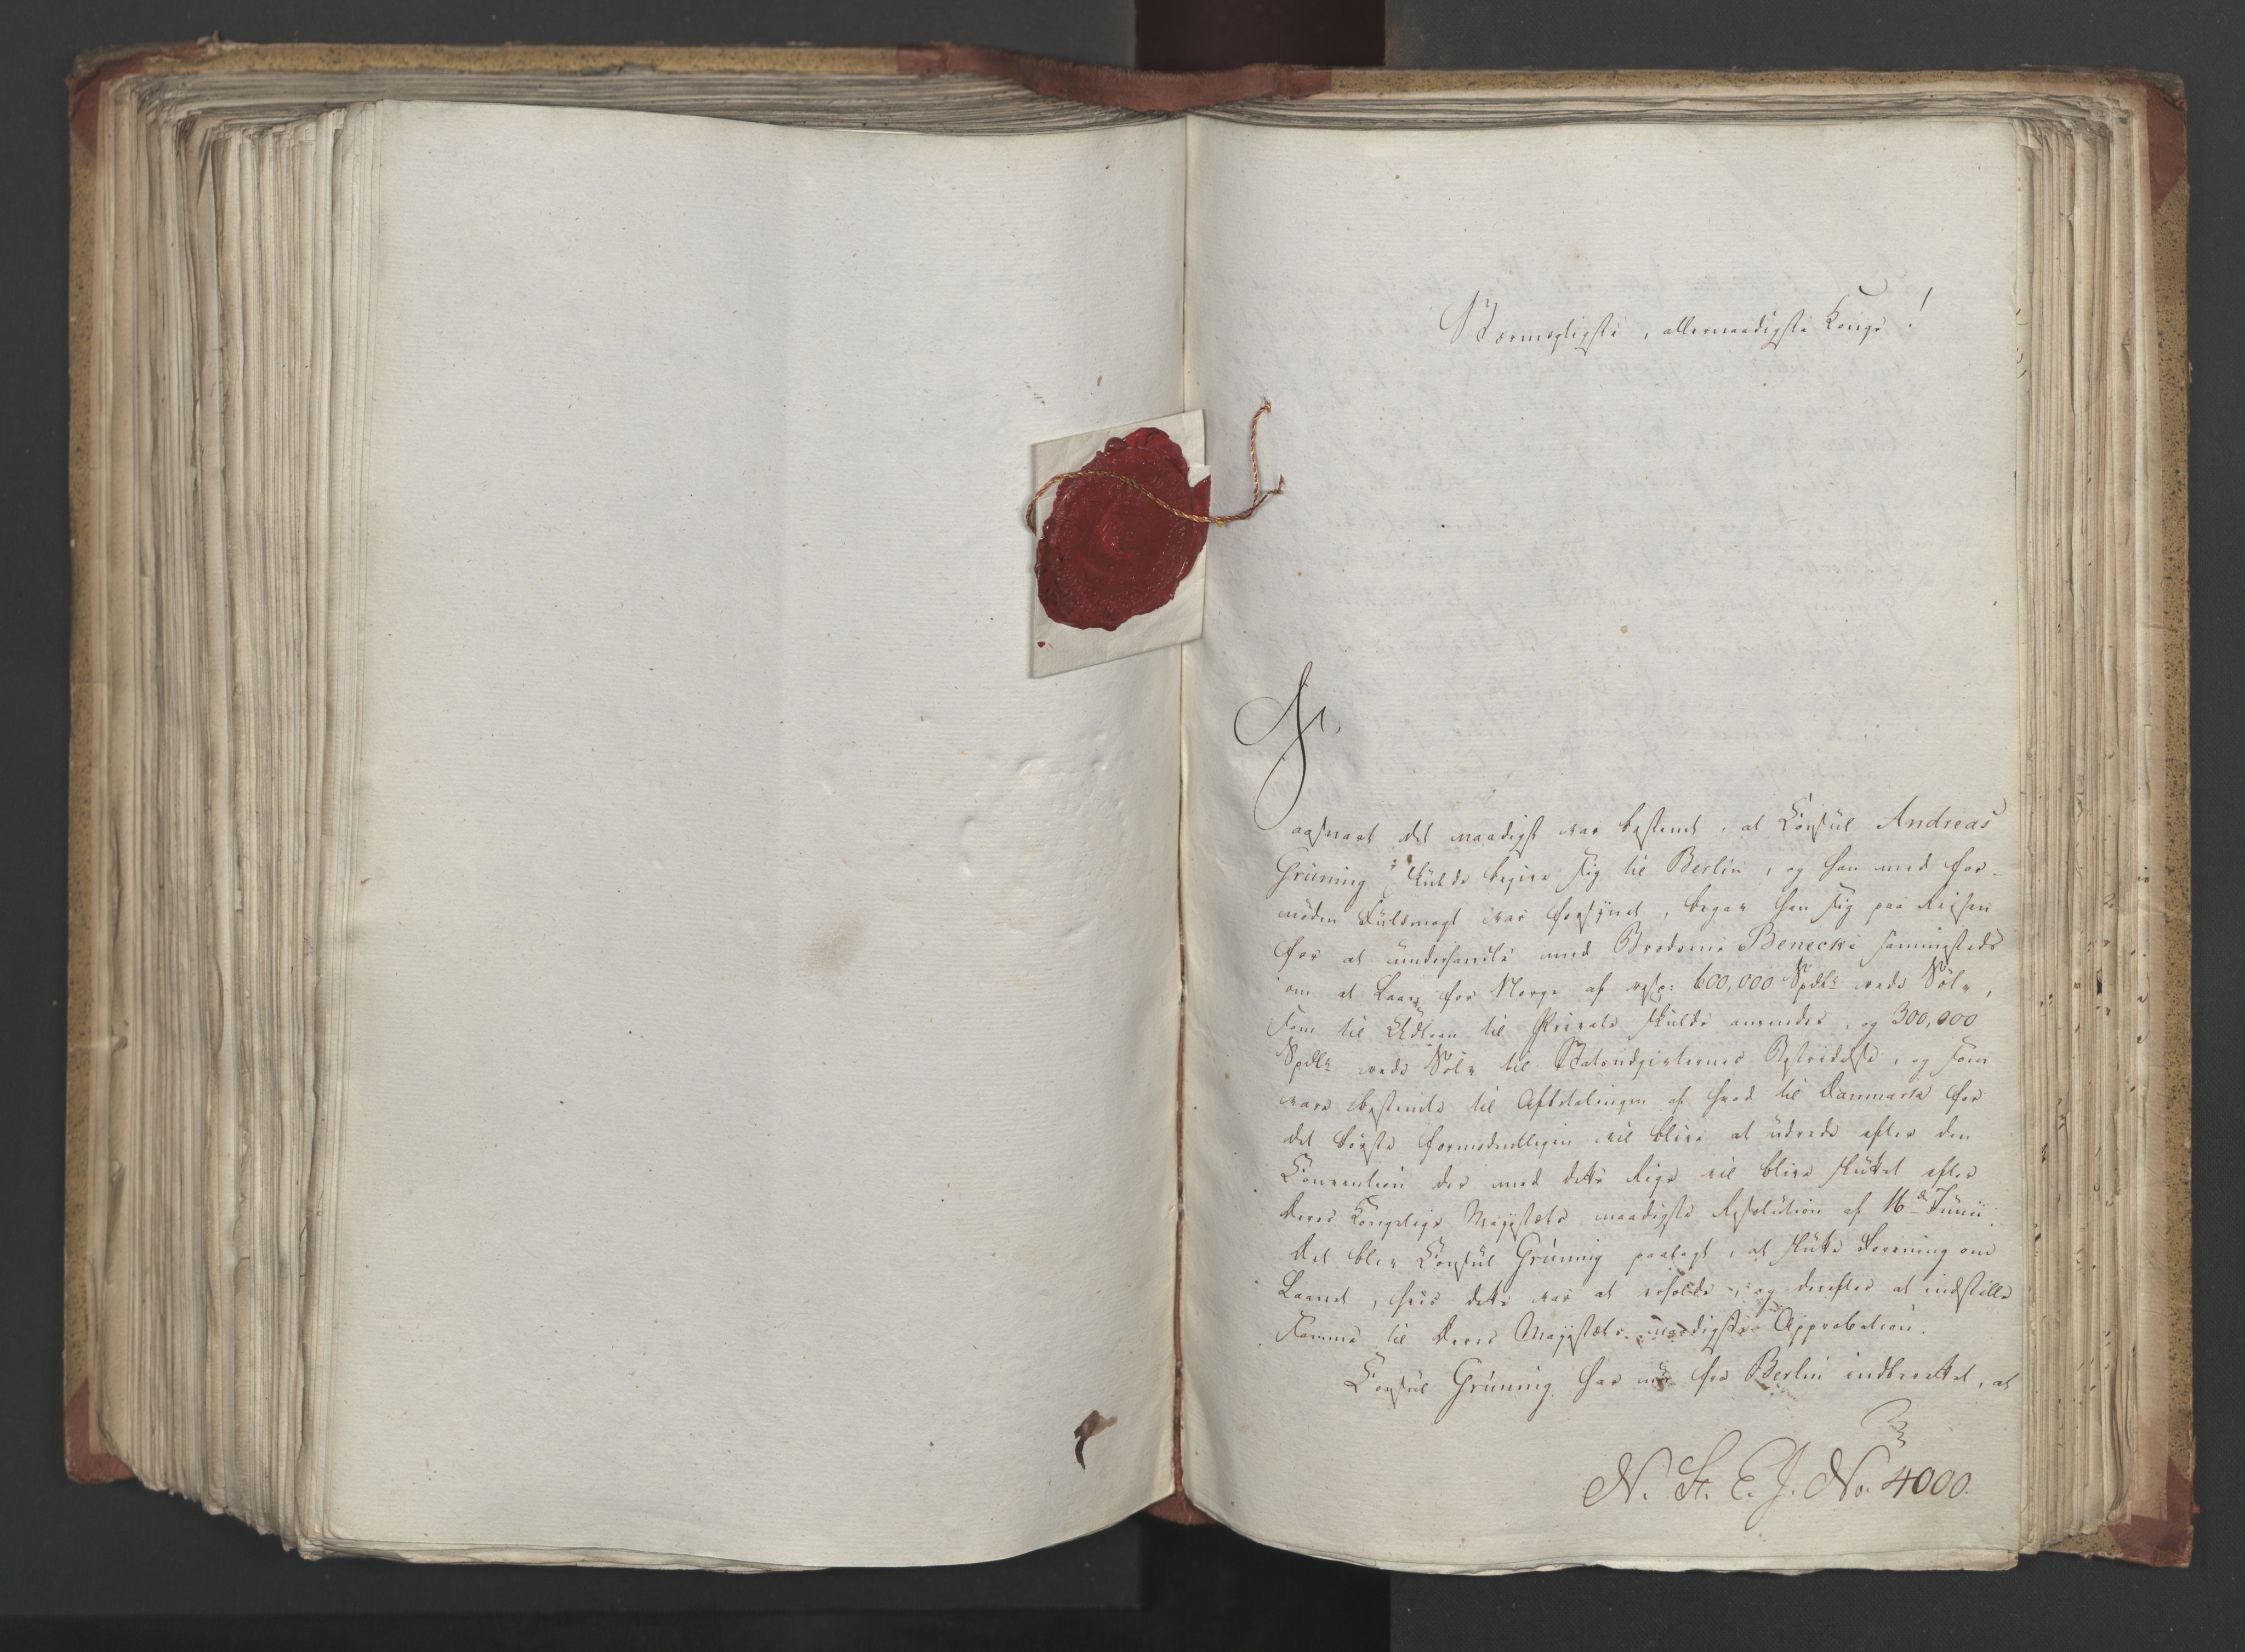 Stormægtigste, allernaadigste Konge!
Saasnart det naadigst var bestemt, at Consul Andreas
Grüning skulde begive sig til Berlin, og han med for-
nøden Fuldmagt var forsynet, begav han sig paa Reisen
for at underhandle med Brødrene Benecke sammesteds
om et Laan for Norge af resp: 600,000 Spdlr rede Sølv,
som til Udlaan til Private skulde anvendes, og 300,000
Spdlr rede Sølv til Statsudgivternes Bestridelse, og som
vare bestemte til Afbetalingen af hvad til Danmark for
det første formodentligen vil blive at udrede efter den
Convention der med dette Rige vil blive sluttet efter
Deres Kongelige Majestæts naadigste Resolution af 16de Junii.
Det blev Consul Grüning paalagt, at slutte Forening om
Laanet, hvis dette var at erholde, og derefter at indstille
samme til Deres Majestæts naadigste Approbation.
Consul Grüning har nu fra Berlin indberettet, at
N. St. C. J. No. 4000.